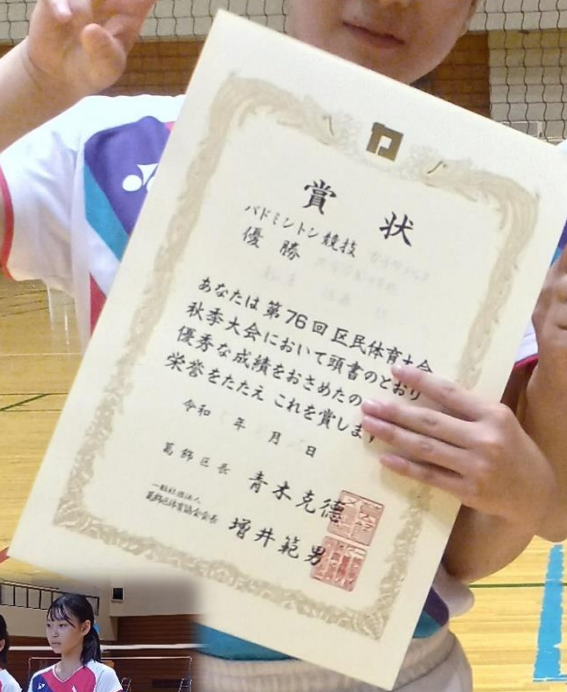 賞状
バドミントン競技
優勝
あなたは第76回区民体育大会
秋季大会において頭書のとおり
優秀な成績をおさめたの
栄誉をたたえ これを賞します
令和 年 月 日
葛飾区長 青木克德
一般社団法人
葛飾区体育協会会長 増井範男